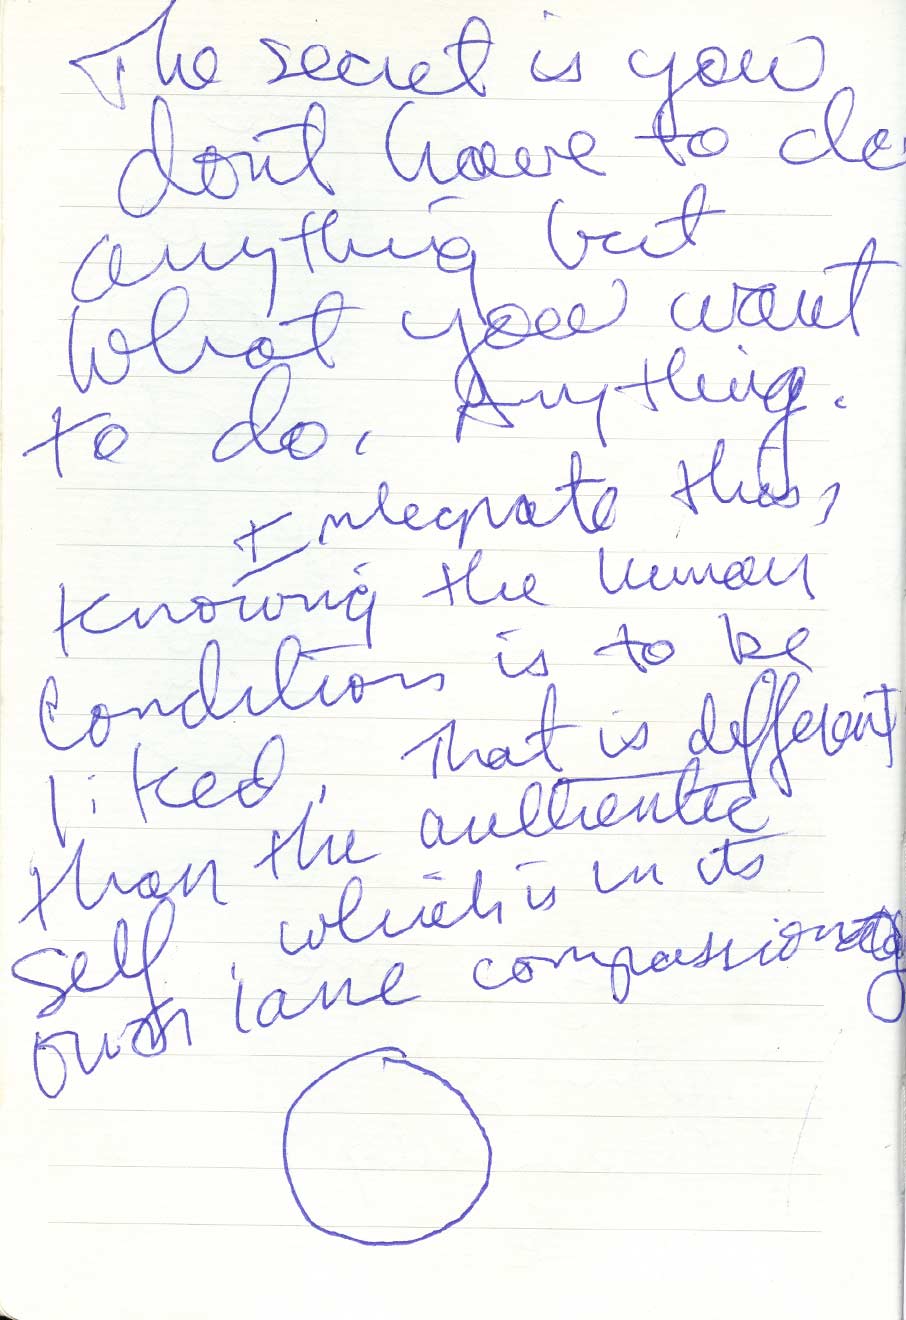 The secret is you
don't have to do
anything but
what you want
to do. Anything.
Integrate this,
knowing the human
condition is to be
liked. That is different
than the authentic
self, which is in its
own lane compassionately